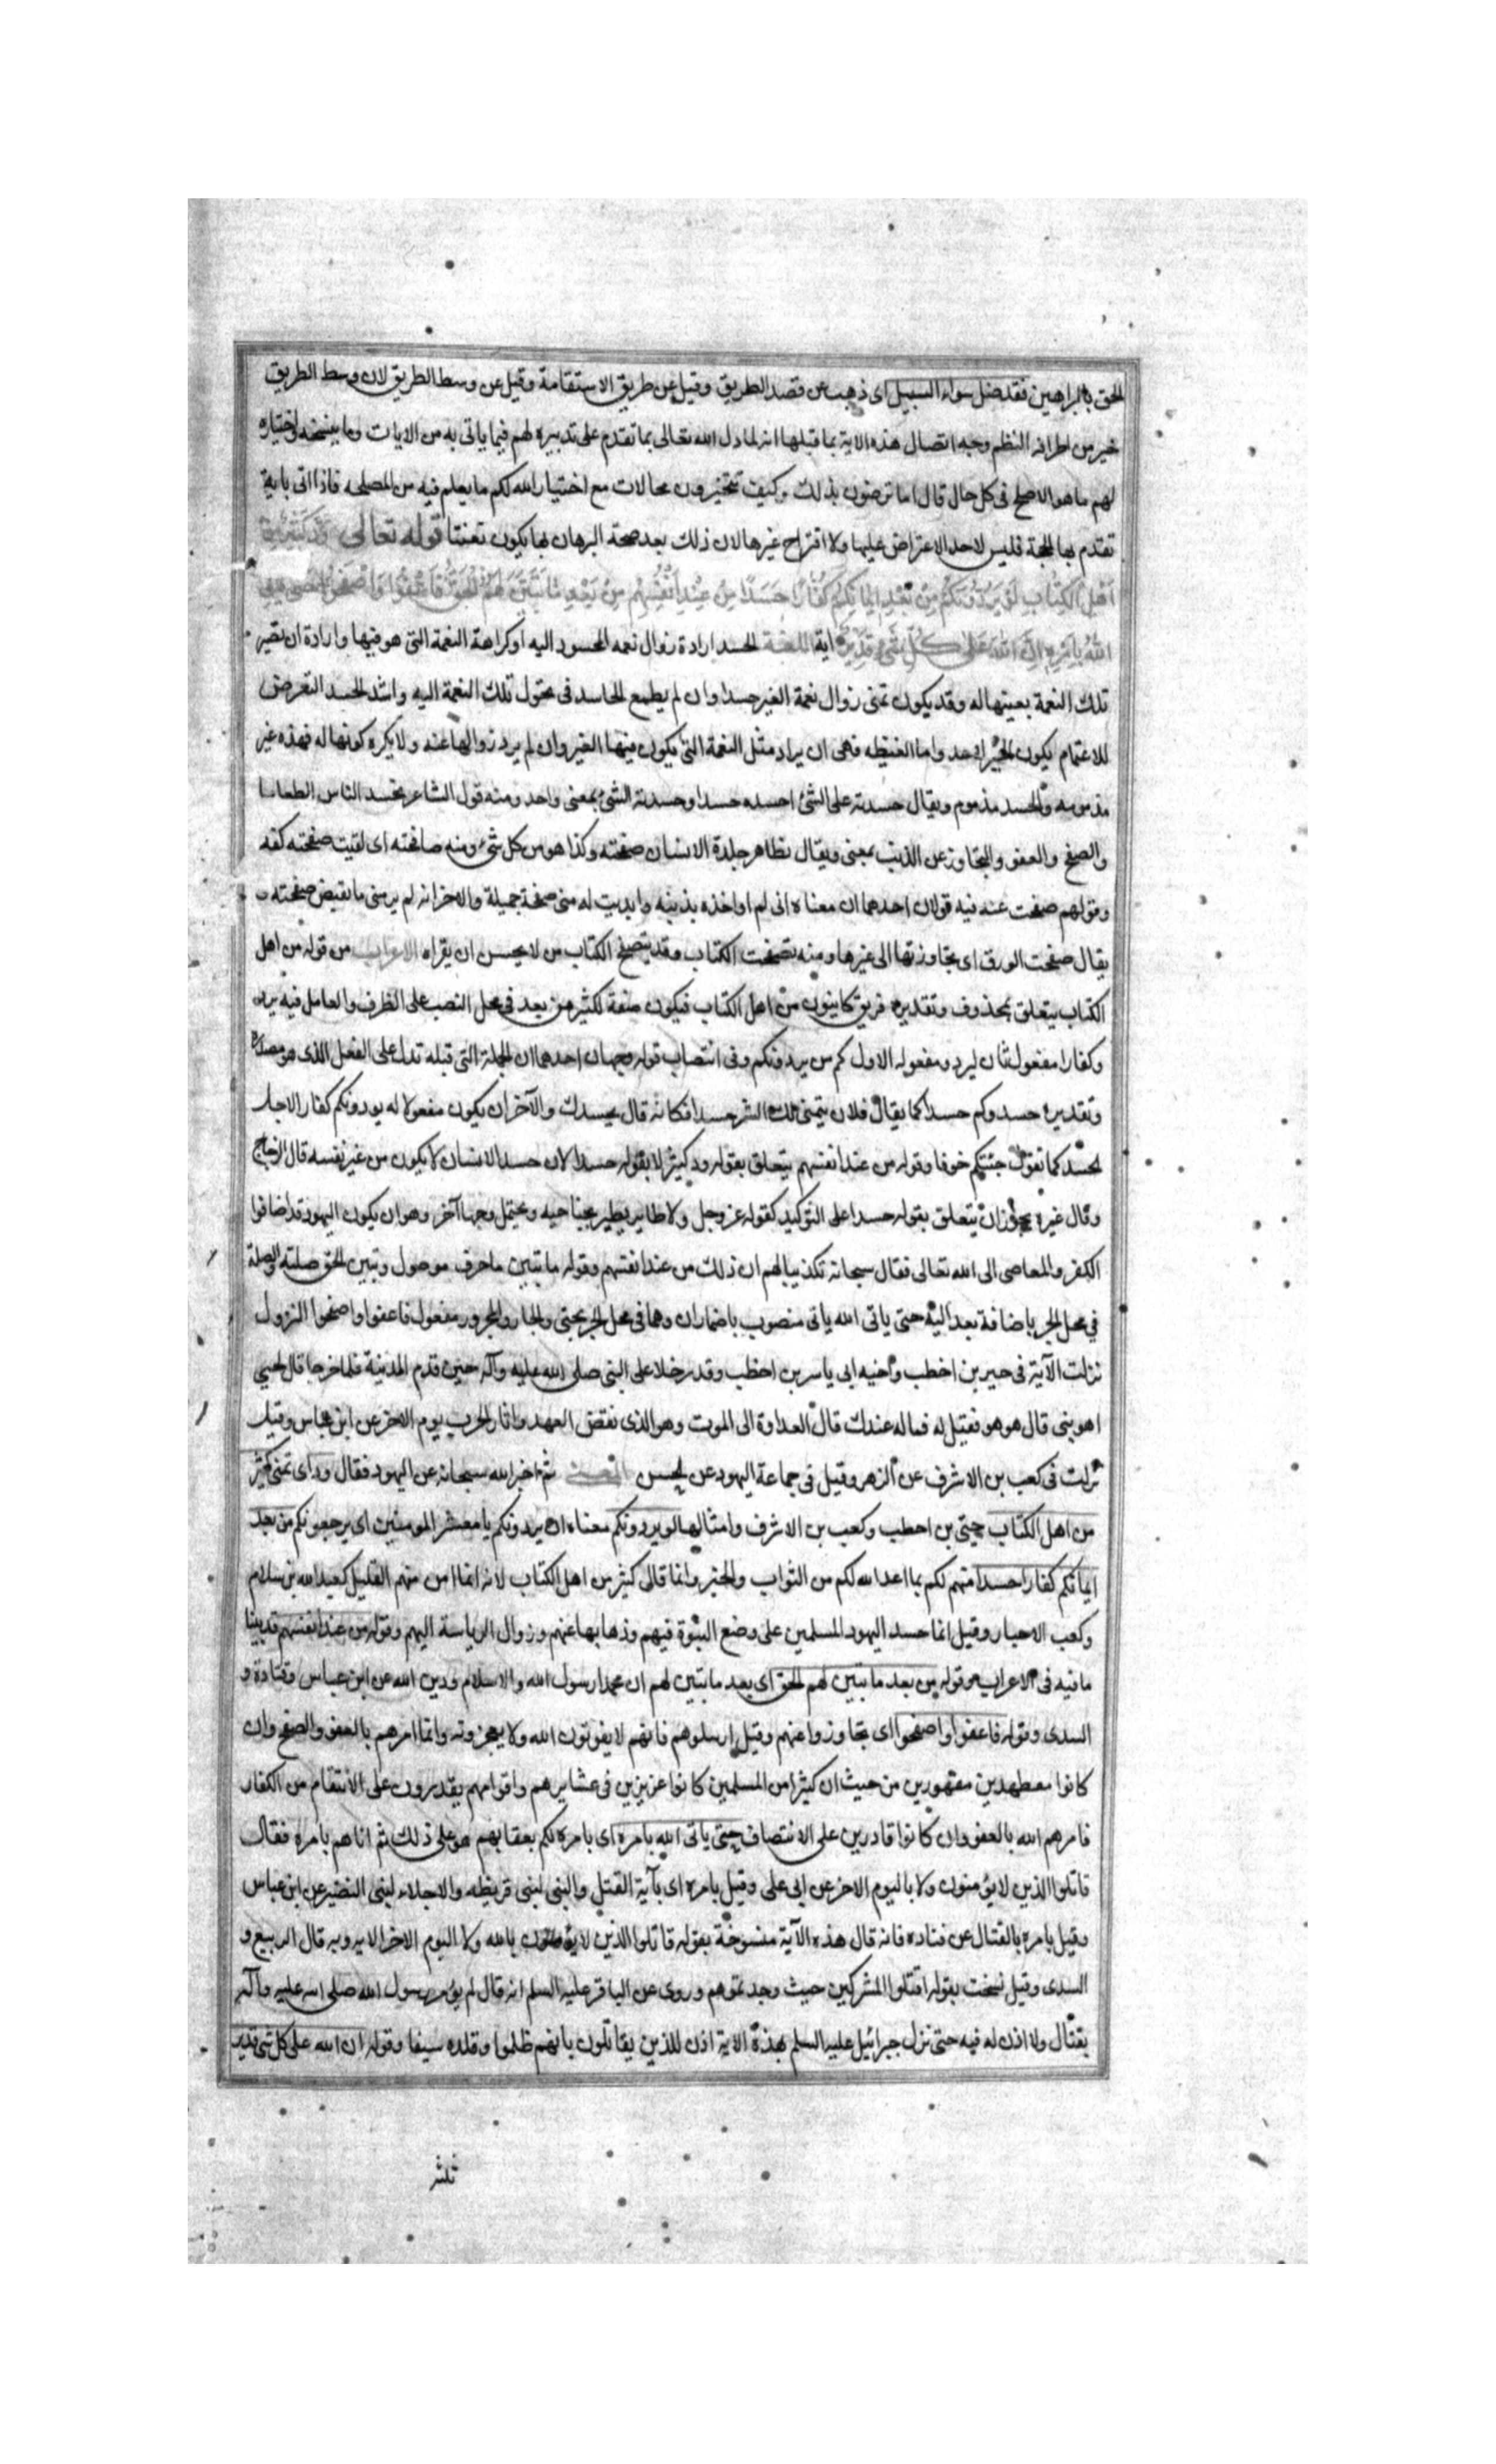 الحق بالبراهين فقد ضل سواء السبيل اى ذهب عن قصد الطريق وقيل عن طريق الاستقامة وقيل عن وسط الطريق لان وسط الطريق
خير من اطرافه النظم وجه اتصال هذه الاية بما قبلها انه لما دل الله تعالى بما تقدم على تدبيره لهم فيما ياتى به من الايات وما ينسخه واختياره
لهم ما هو الاصلح فى كل حال قال اما ترضون بذلك وكيف تتخيرون محالات مع اختيار الله لكم ما يعلم فيه من المصلحه فاذا اتى باية
تقدم بها الحجة فليس لاحد الاعتراض عليها ولا اقتراح غيرها لان ذلك بعد صحة البرهان بها يكون تعنتا قوله تعالى ود كثير من
اهل الكتاب لو يردونكم من بعد ايمانكم كفارا حسدا من عند انفسهم من بعد ما تبين لهم الحق فاعفوا واصفحوا حتى ياتى
الله بامره ان الله على كل شىء قدير اية اللغة الحسد ارادة زوال نعمه المحسود اليه او كراهة النعمة التى هو فيها وارادة ان تصير
تلك النعمة بعينها له وقد يكون تمنى زوال نعمة الغير حسدا وان لم يطمع الحاسد فى تحول تلك النعمة اليه واشد الحسد التعرض
للاغتمام يكون الخير لاحد واما الغبطه فهى ان يراد مثل النعمة التى يكون فيها الغير وان لم يرد زوالها عنه ولا يكره كونها له فهذه غير
مذمومه والحسد مذموم ويقال حسدته على الشئ احسده حسدا وحسدته الشئ بمعنى واحد ومنه قول الشاعر تحسد الناس الطعاما
والصفح والعفو والتجاوز عن الذنب بمعنى ويقال نظاهر جلدة الانسان صفحته وكذا هو من كل شئ ومنه صافحته اى لقيت صفحته كفه
وقولهم صفحت عنه فيه قولان احدهما ان معناه انى لم اواخذه بذنبه وابديت له منى صفحة جميلة والاخر انه لم ير منى ما تقبض صفحته و
يقال صفحت الورق اى تجاوزتها الى غيرها ومنه تصفحت الكتاب وقد يتصفح الكتاب من لا يحسن ان يقراه الاعراب من قوله من اهل
الكتاب يتعلق بمحذوف وتقديره فريق كاينون من اهل الكتاب فيكون صفة لكثير من بعد فى محل النصب على الظرف والعامل فيه يرد
وكفارا مفعول ثان ليرد ومفعوله الاول كم من يردونكم وفى انتصاب قوله وجهان احدهما ان الجملة التى قبله تدل على الفعل الذى هو مصدره
وتقديره حسدوكم حسدا كما يقال فلان يتمنى لك الشر حسدا فكانه قال يحسدك والآخر ان يكون مفعولا له يردونكم كفارا لاجل
الحسد كما تقول جئتكم خوفا وقوله من عند انفسهم يتعلق بقوله ود كثير لا بقوله حسدا لان حسد الانسان لا يكون من غير نفسه قال الزجاج
وقال غيره يجوز ان يتعلق بقوله حسدا على التوكيد كقوله عز وجل ولا طاير يطير بجناحيه ويحتمل وجها آخر وهو ان يكون اليهود قد اضافوا
الكفر والمعاصى الى الله تعالى فقال سبحانه تكذيبا لهم ان ذلك من عند انفسهم وقوله ما تبين ما حرف موصول وتبين الحق صلته والصلة
فى محل الجر باضافة بعد اليه حتى ياتى الله ياتى منصوب باضمار ان وهما فى محل الجر بحتى والجار والمجرور مفعول فاعفوا واصفحوا النزول
نزلت الآية فى حيى بن اخطب واخيه ابى ياسر بن اخطب وقد دخلا على النبى صلى الله عليه وآله حين قدم المدينة فلما خرجا قال لحيي
اهو نبى قال هو هو فقيل له فما له عندك قال العداوة الى الموت وهو الذى نقض العهد واثار الحرب يوم الاخر عن ابن عباس وقيل
نزلت فى كعب بن الاشرف عن الزهر وقيل فى جماعة اليهود عن الحسن المعنى ثم اخبر الله سبحانه عن اليهود فقال ود اى تمنى كثير
من اهل الكتاب حيى بن احطب وكعب بن الاشرف وامثالهما لو يردونكم معناه ان يردونكم يا معشر المومنين اى يرجعونكم من بعد
ايمانكم كفارا حسدا منهم لكم بما اعد الله لكم من الثواب والخير وانما قال كثير من اهل الكتاب لانه انما امن منهم القليل كعبد الله بن سلام
وكعب الاحبار وقيل انما حسد اليهود المسلمين على وضع النبوة فيهم وذهابها عنهم وزوال الرياسة اليهم وقوله من عند انفسهم قد بينا
ما فيه فى الاعراب وقوله من بعد ما تبين لهم الحق اى بعد ما تبين لهم ان محمدا رسول الله والاسلام ودين الله عن ابن عباس وقتادة و
السدى وقوله فاعفوا واصفحوا اى تجاوزوا عنهم وقيل ارسلوهم فانهم لا يفوتون الله ولا يعجزونه وانما امرهم بالعفو والصفح وان
كانوا مضطهدين مقهورين من حيث ان كثيرا من المسلمين كانوا عزيزين فى عشايرهم واقوامهم يقدرون على الانتقام من الكفار
فامرهم الله بالعفو وان كانوا قادرين على الانتصاف حتى ياتى الله بامره اى بامره لكم بعقابهم هو على ذلك ثم اتاهم بامره فقال
قاتلوا الذين لا يؤمنون ولا باليوم الاخر عن ابى على وقيل بامره اى بآية القتل والسبى لبنى قريظه والاجلاء لبنى النضير عن ابن عباس
وقيل بامره بالقتال عن قتاده فانه قال هذه الآية منسوخة بقوله قاتلوا الذين لا يؤمنون بالله ولا اليوم الاخر الايه وبه قال الربيع و
السدى وقيل نسخت بقوله اقتلوا المشركين حيث وجدتموهم وروى عن الباقر عليه السلم انه قال لم يؤمر رسول الله صلى الله عليه وآله
بقتال ولا اذن له فيه حتى نزل جبرائيل عليه السلم بهذه الاية اذن للذين يقاتلون بانهم ظلموا وقلده سيفا وقوله ان الله على كل شئ قدير